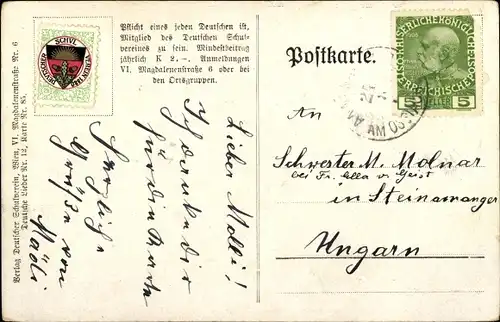 Pflicht eines jeden Deutschen ist,
Mitglied des Deutschen Schul-
vereines zu sein. Mindestbeitrag
jährlich K 2.-. Anmeldungen
VI, Magdalenenstraße 6 oder bei
den Ortsgruppen.
Verlag Deutscher Schulverein, Wien, VI. Magdalenenstraße Nr. 6
Deutsche Lieder Nr. 12, Karte Nr. 85.
DEUTSCHER SCHUL VEREIN
Lieber Molli!
Ich danke dir
für die Karte
Herzliche
Grüße von
Mädi
Postkarte.
KAISERLICHEKÖNIGLICHE
ÖSTERREICHISCHE POST
5 HELLER 5
1908
An
Schwester M. Molnar
bei Fr. Ella v. Geist
in Steinamanger
Ungarn